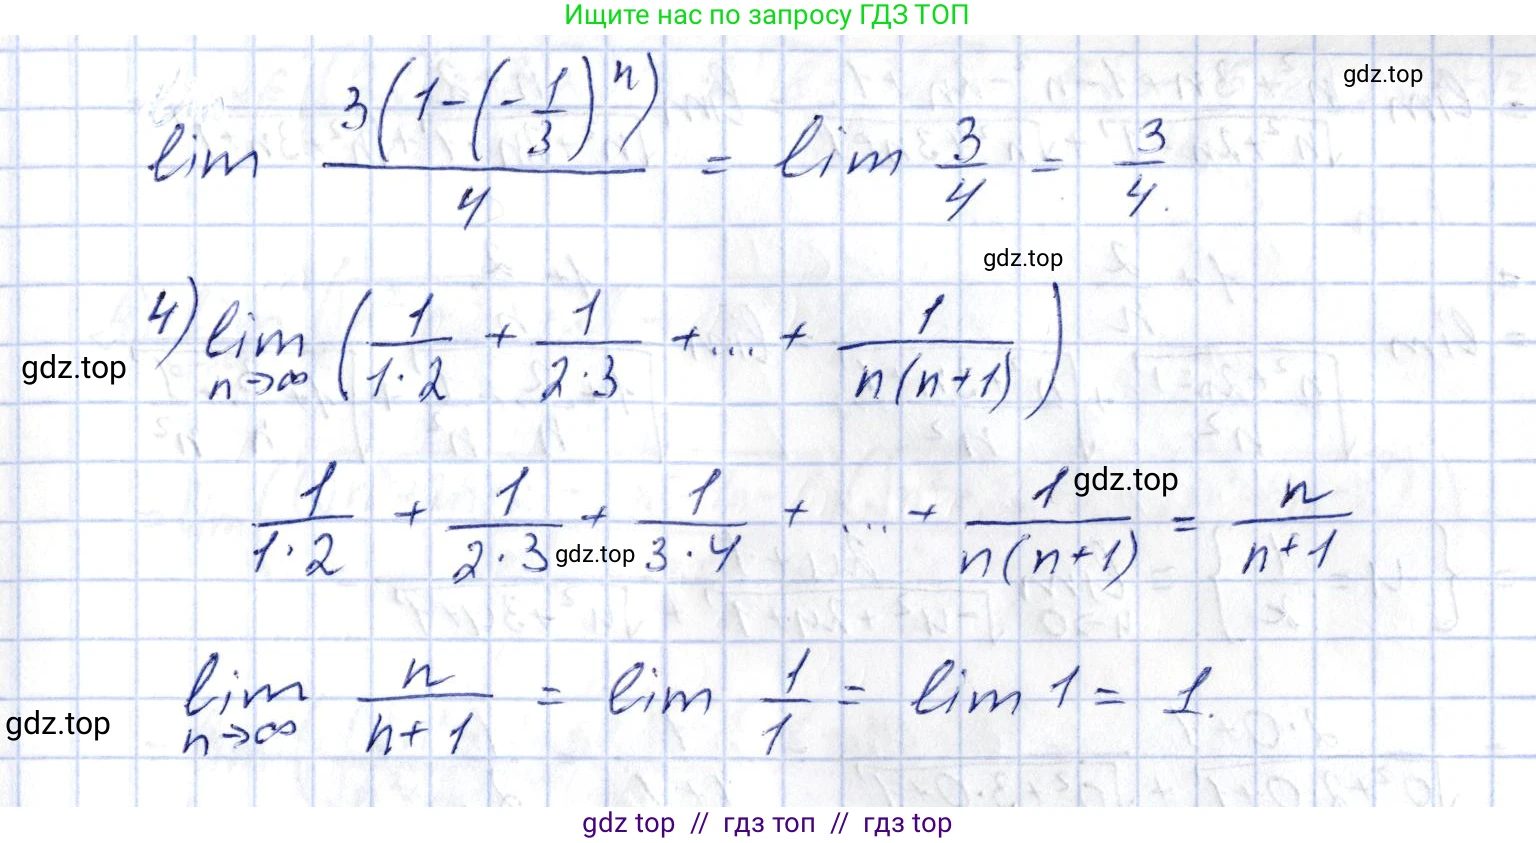 Ищите нас по запросу ГДЗ ТОП
gdz.top
lim 3(1-(-1/3)^n)/4 = lim 3/4 = 3/4.
gdz.top
4) lim n→∞ (1/(1·2) + 1/(2·3) + ... + 1/(n(n+1)))
gdz.top
1/(1·2) + 1/(2·3) + 1/(3·4) + ... + 1/(n(n+1)) = n/(n+1)
gdz.top
gdz.top
lim n→∞ n/(n+1) = lim 1/1 = lim 1 = 1.
gdz.top
gdz top // гдз топ // гдз top